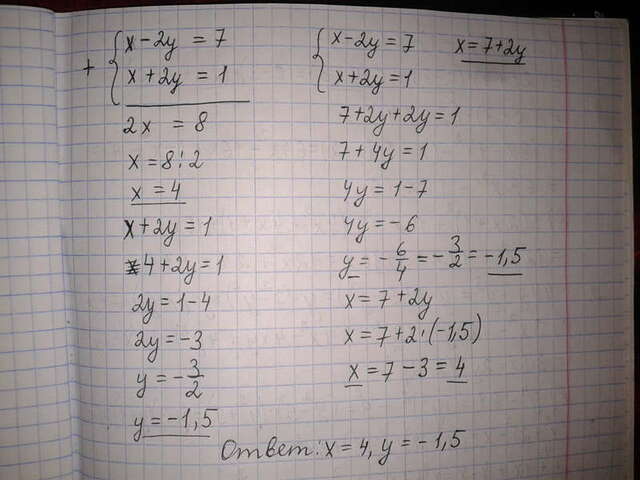 + { x - 2y = 7
x + 2y = 1
2x = 8
x = 8 : 2
x = 4
x + 2y = 1
4 + 2y = 1
2y = 1 - 4
2y = -3
y = -3/2
y = -1,5
{ x - 2y = 7 x = 7 + 2y
x + 2y = 1
7 + 2y + 2y = 1
7 + 4y = 1
4y = 1 - 7
4y = -6
y = -6/4 = -3/2 = -1,5
x = 7 + 2y
x = 7 + 2 · (-1,5)
x = 7 - 3 = 4
Ответ: x = 4, y = -1,5